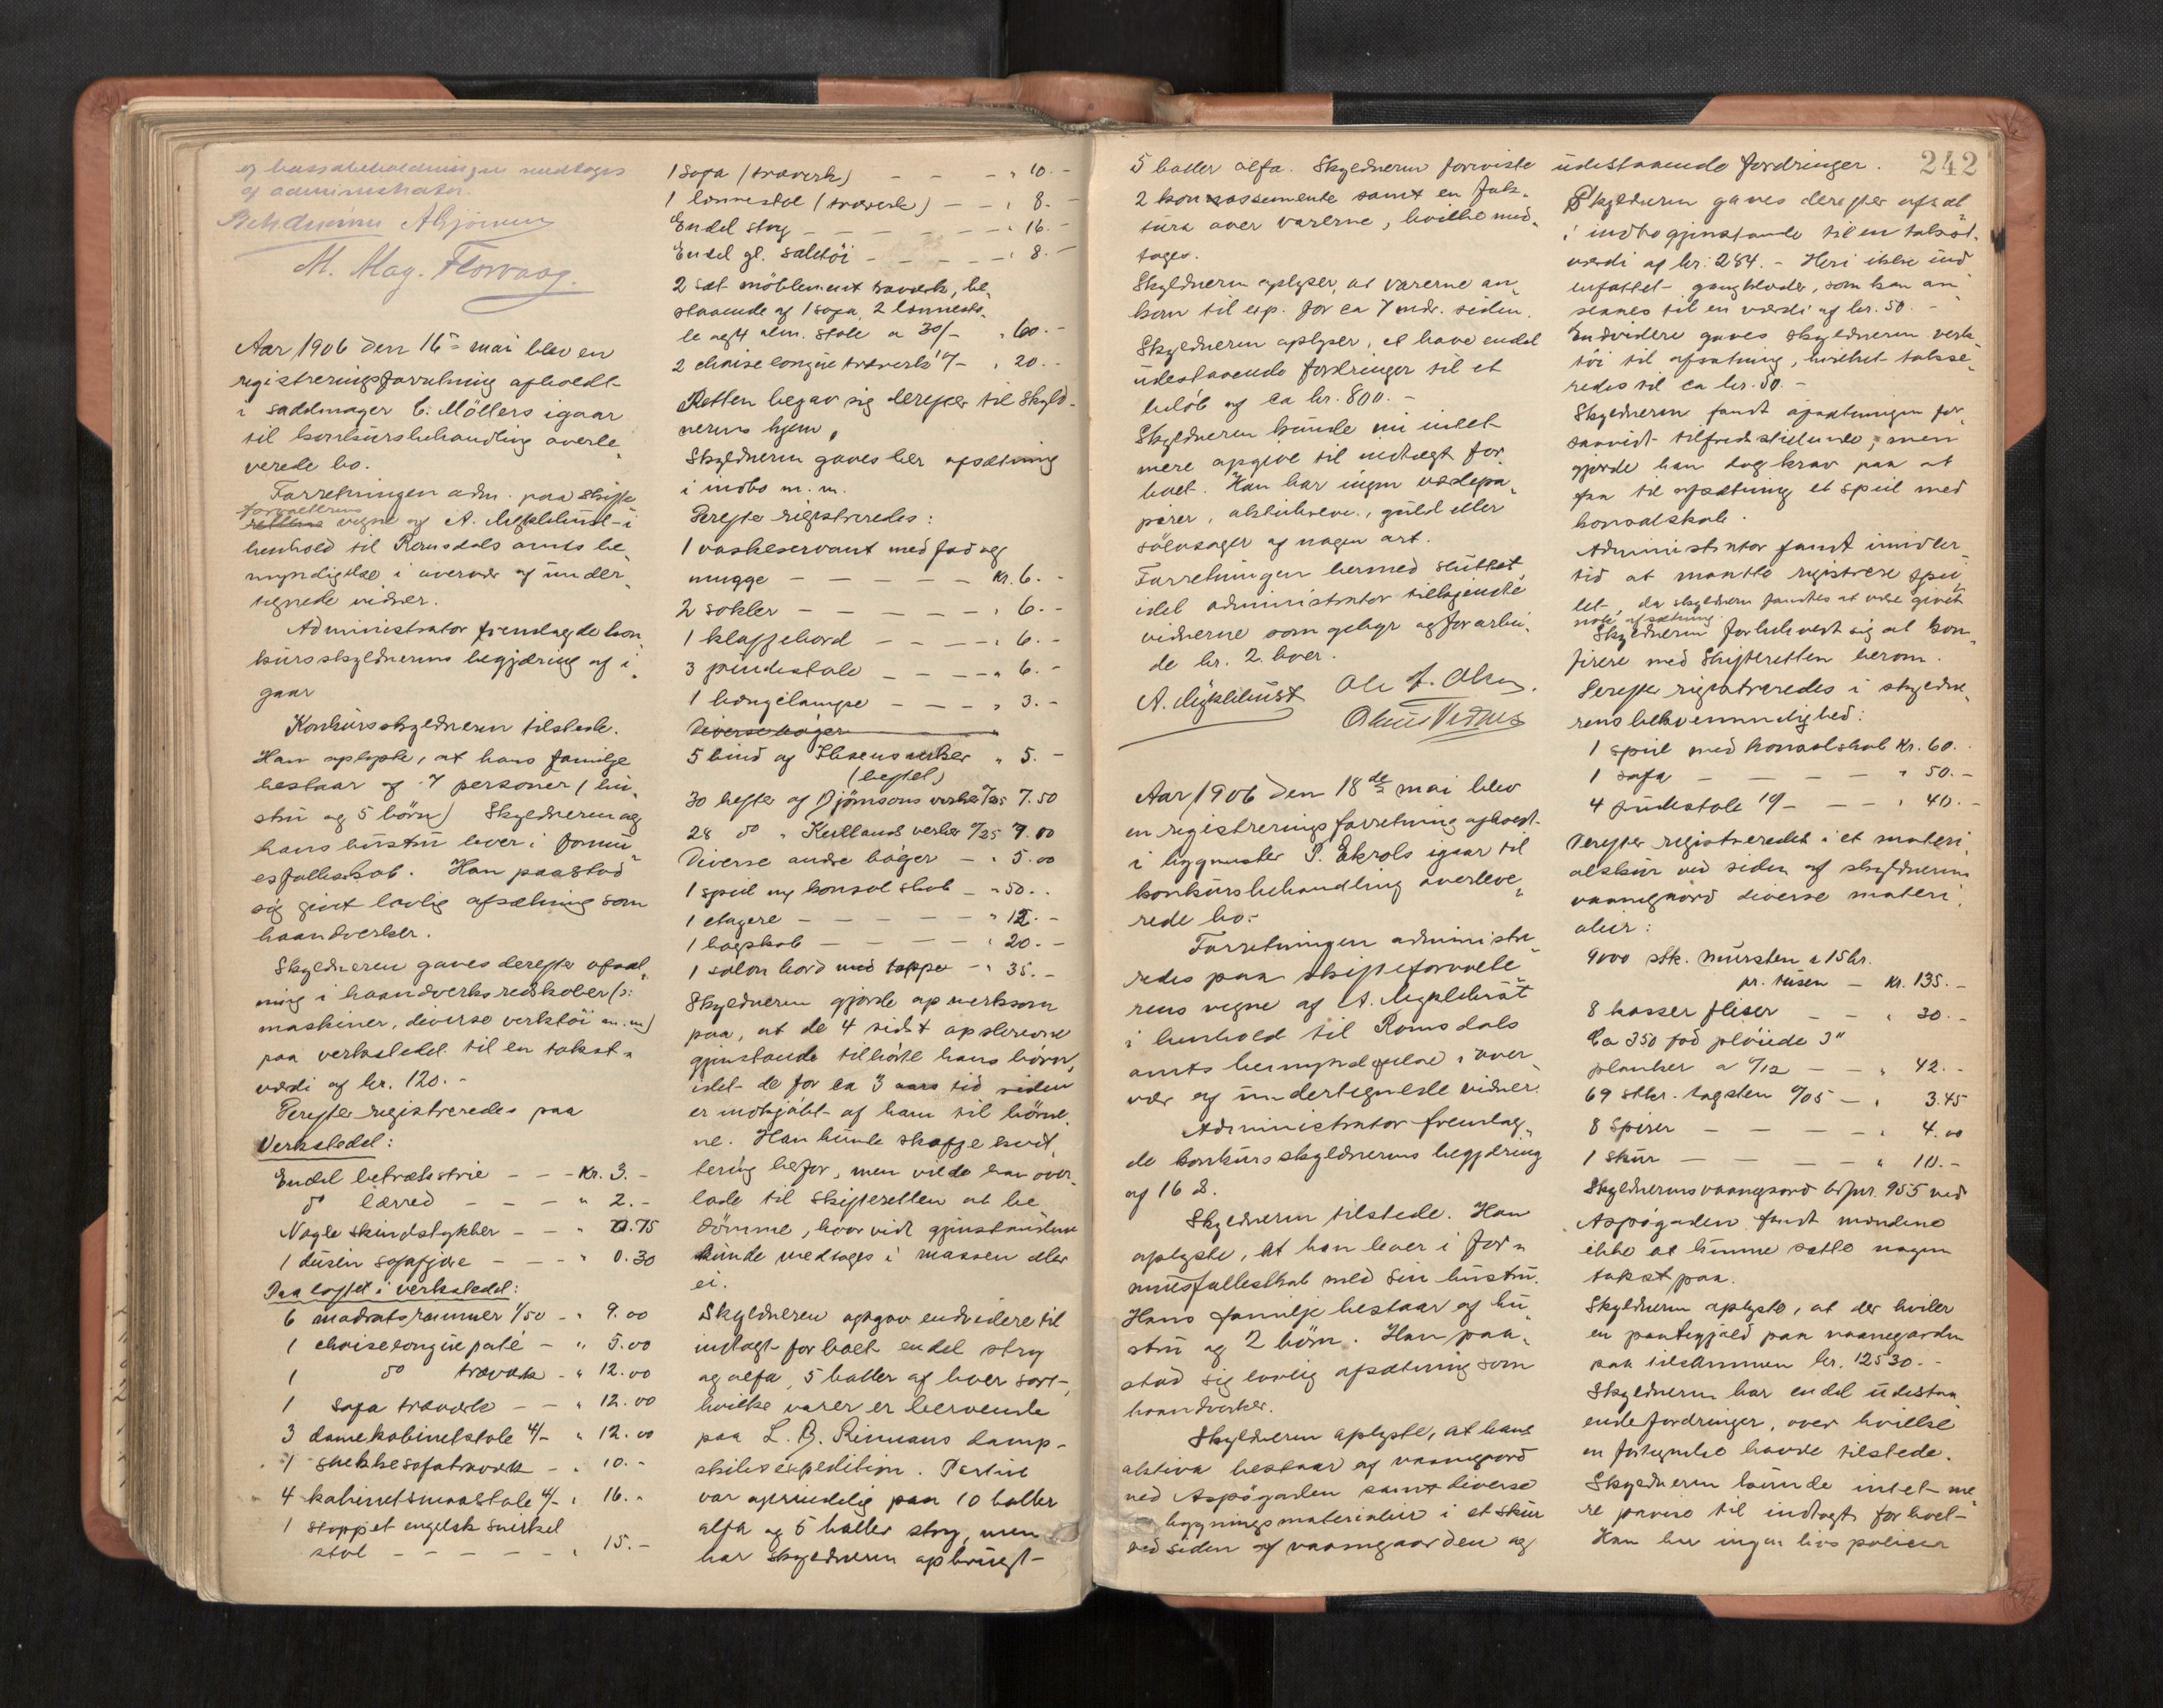 og kassabeholdningen modtoges
af administrator.
M. Mag. Florvaag.
Aar 1906 den 16de mai blev en
registreringsforretning afholdt
i sadelmager C. Möllers igaar
til konkursbehandling overle„
verede bo.
Forretningen adm. paa skifte
forvalterens
rettens vegne af A. Mykleüst i
henhold til Romsdals amts be„
myndigelse i overvær af under„
tegnede vidner.
Administrator fremlagde kon„
kürsskyldnerens begjæring af i„
gaar
Konkürsskyldneren tilstede.
Han oplyste, at hans familje
bestaar af 7 personer (hü„
strü og 5 börn) Skyldneren og
hans hüstrü lever i formü„
esfællesskab. Han paastod
sig givet lovlig afsætning som
haandverker.
Skyldneren gaves derefter afsæt„
ning i haandverksredskaber (:
maskiner, diverse verktöi m.m)
paa verkstedet til en takst„
værdi af kr. 120.-
Derefter registreredes paa
Verkstedet:
Endel betræksstrie - - - Kr. 3.-
do lærred - - - " 2.-
Nogle skindstykker - - " 0.75
1 düsin sofafjære - - - " 0.30
Paa loftet i verkstedet:
6 madratsrammer 1/50 - " 9.00
1 chaiselongüe paté - " 5.00
1 do træværk - " 12.00
1 sofa træværk - - " 12.00
3 damekabinetstole 4/- " 12.00
1 snekkesofatræværk - " 10.-
4 kabinetsmaastole 4/- " 16.-
1 stoppet engelsk snirkel
stol - - - - - " 15.-
1 sofa (træværk) - - - " 10.-
1 lænestol (træværk) - - " 8.-
Endel stry - - - - - " 16.-
Endel gl. sæletöi - - - - " 8.-
2 sæt möblement træværk, be„
staaende af 1 sofa, 2 lænesto„
le og 4 alm. stole a 30/- " 60.-
2 chaiselongüe træverk 10/- " 20.-
Retten begav sig derefter til skyld-
nerens hjem,
Skyldneren gaves her afsætning
i indbo m. m.
Derefter registreredes:
1 vaskeservant med fad og
mugge - - - - - Kr. 6.-
2 sokler - - - - - " 6.-
1 klaffebord - - - " 6.-
3 pindestole - - - " 6.-
1 hængelampe - - - " 3.-
Diverse böger
5 bind af Ibsens verker " 5.-
(heftet)
30 hefter af Björnsons verker 0/25 7.50
28 do " Kiellands verker 0/25 7.00
Diverse andre böger - " 5.00
1 speil og konsol skab - " 50.-
1 etagere - - - - - " 12.-
1 bogskab - - - - " 20.-
1 salon bord med tæppe - " 35.-
Skyldneren gjorde opmerksom
paa, at de 4 sidst opskrevne
gjenstande tilhörte hans börn,
idet de for ca 3 aars tid siden
er indkjöbt af ham til börne„
ne. Han künde skaffe kvit„
tering herfor, men vilde han over„
lade til skifteretten at be„
dömme, hvorvidt gjenstandene
künde medtages i massen eller
ei.
Skyldneren opgav endvidere til
indtægt for boet endel stry
og alfa, 5 baller af hver sort,
hvilke varer er beroende
paa L. B. Rimans damp-
skibsexpedition. Partiet
var oprindelig paa 10 baller
alfa og 5 baller stry, men
har skyldneren opbrügt
242
5 baller alfa. Skyldneren foreviste
2 konossemente samt en fak„
tura over varerne, hvilke med„
toges.
Skyldneren oplyser, at varerne an„
kom til exp. for ca 7 mdr. siden.
Skyldneren oplyser, at have endel
üdestaaende fordringer til et
belöb af ca kr. 800.-
Skyldneren künde nü intet
mere opgive til indtægt for
boet. Han har ingen værdipa„
pirer, aktiebreve, güld eller
sölvsager af nogen art.
Forretningen hermed slüttet
idet administrator tilkjendte
vidnerne som gebyr og for arbei„
de kr. 2. hver.
A. Mykleüst Ole J. Olsen.
Aar 1906 den 18de mai blev
en registreringsforretning afholdt
i bygmester P. Ekrols igaar til
konkürsbehandling overleve„
rede bo.
Forretningen administre„
redes paa skifteforvalte„
rens vegne af A. Mykleüst
i henhold til Romsdals
amts bemyndigelse i over
vær af ündertegnede vidner.
Administrator fremlag„
de konkürsskyldnerens begjæring
af 16 d.
Skyldneren tilstede. Han
oplyste, at han lever i for„
müsfællesskab med sin hüstrü.
Hans familje bestaar af hü„
strü og 2 börn. Han paa„
stod sig lovlig afsætning som
haandverker.
Skyldneren oplyste, at hans
aktiva bestaar af vaanegaard
ved Aspögaden samt diverse
bygningsmaterialier i et skür
ved siden af vaanegaarden og
üdestaaende fordringer.
Skyldneren gaves derefter afsæt„
i indbogjenstande til en takst„
værdi af kr. 284.- Heri ikke ind
befattet gangklæder, som kan an
sees til en værdi af kr. 50.-
Endvidere gaves skyldneren verk„
töi til afsætning, hvilket takse„
redes til ca kr. 50.-
Skyldneren fandt afsætningen for„
saavidt tilfredsstillende; men
gjorde han dog krav paa at
faa til afsætning et speil med
konsolskab.
Administrator fandt imidler„
tid at maatte registrere spei„
let, da skyldneren fandtes at være givet
nok afsætning.
Skyldneren forbeholdt sig at kon„
ferere med Skifteretten herom.
Derefter registreredes i skyldne„
rens bekvemmelighed:
1 speil med konsolskab Kr. 60.-
1 sofa - - - - - " 50.-
4 pudestole 10/- - - " 40.-
Derefter registreredes i et materi„
alskür ved siden af skyldnerens
vaanegaard diverse materi„
alier:
9000 stk. mürsten a 15 kr.
pr. tüsen - Kr. 135.-
8 kasser fliser - - " 30.-
Ca 350 fod plöiede 3"
planker a 0/12 - - " 42.-
69 stkr. tagsten 0/05 - " 3.45
8 Spirer - - - - " 4.00
1 skür - - - - " 10.-
Skyldnerens vaanegaard br.nr. 955 ved
Aspögaden fandt mændene
ikke at künne sætte nogen
takst paa.
Skyldneren oplyste, at der hviler
en pantegjæld paa vaanegarden
paa tilsammen kr. 12530.-
Skyldneren har endel üdestaa
ende fordringer, over hvilke
en fortegnelse havde tilstede.
Skyldneren künde intet me„
re paavise til indtægt for boet
Han har ingen livspolicer